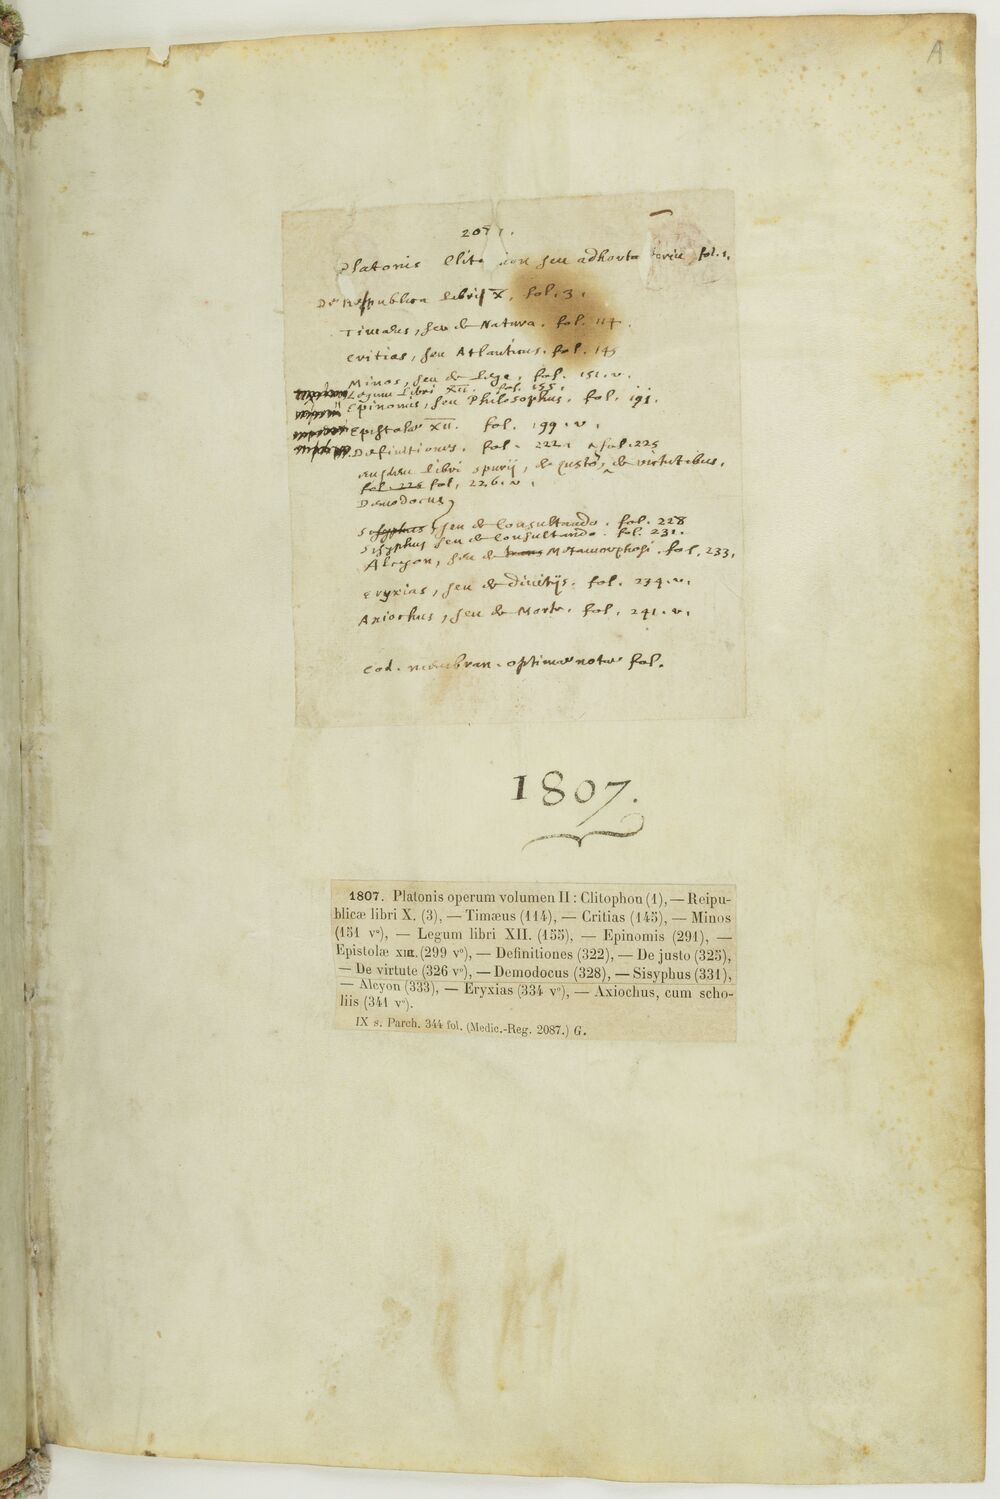 A
Platonis seu adhorta fol. 1.
De Republica Libri X, fol. 3.
Timæus, seu de Natura. fol. 114.
Critias, seu Atlanticus. fol. 145
Minos, seu de Lege, fol. 151. v.
Legum Libri XII. fol. 155.
Epinomis, seu Philosophus. fol. 191.
Epistolæ XII. fol. 199. v.
Definitiones. fol. 222. fol. 225
Libri spurij, de justo, de virtutibus,
fol. 225 fol, 226. v.
Demodocus,
Sisyphus, seu de Consultando. fol. 228
Sisyphus seu de Consultando. fol. 231.
Alcyon, seu de trans Metamorphosi. fol. 233.
Eryxias, seu de divitijs. fol. 234. v.
Axiochus, seu de Morte. fol. 241. v.
Cod. membran. optimæ notæ fol.
1807.
1807. Platonis operum volumen II : Clitophon (1), — Reipu-
blicæ libri X. (3), — Timæus (114), — Critias (145), — Minos
(151 vº), — Legum libri XII. (155), — Epinomis (291), —
Epistolæ XIII. (299 vº), — Definitiones (322), — De justo (325),
— De virtute (326 vº), — Demodocus (328), — Sisyphus (331),
— Alcyon (333), — Eryxias (334 vº), — Axiochus, cum scho-
liis (341 vº).
IX s. Parch. 344 fol. (Medic.-Reg. 2087.) G.